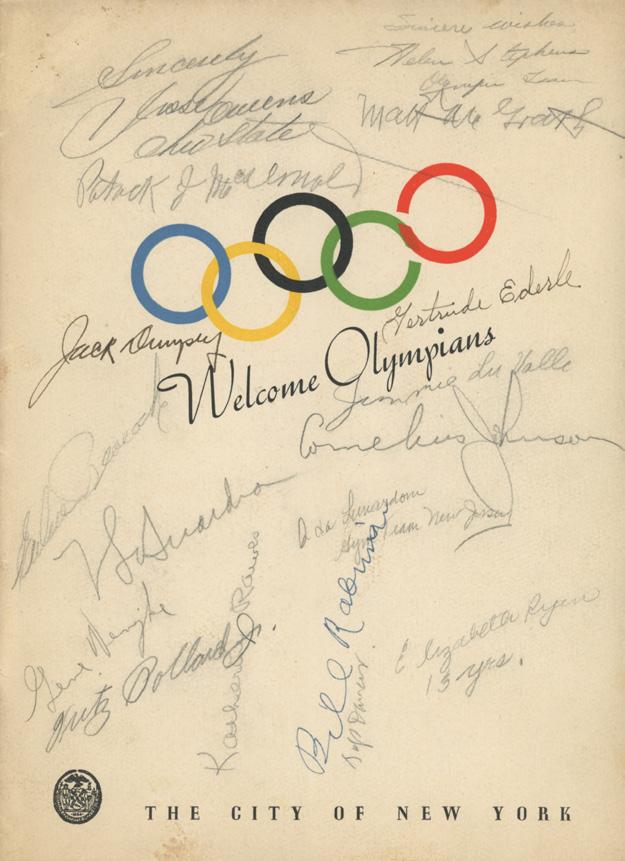 Sincerely
Jesse Owens
Ohio State
Sincere wishes
Helen Stephens
Olympic Team
Matt Mc Grath
Patrick J McDonald
Gertrude Ederle
Jack Dempsey
Welcome Olympians
Jimmie Lu Valle
Cornelius Johnson
Eulace Peacock
Gym Team New Jersey
Gene Venzke
Fritz Pollard Jr.
Katherine Rawls
Bill Robinson
Tap Dancer.
Elizabeth Ryan
13 yrs.
THE CITY OF NEW YORK